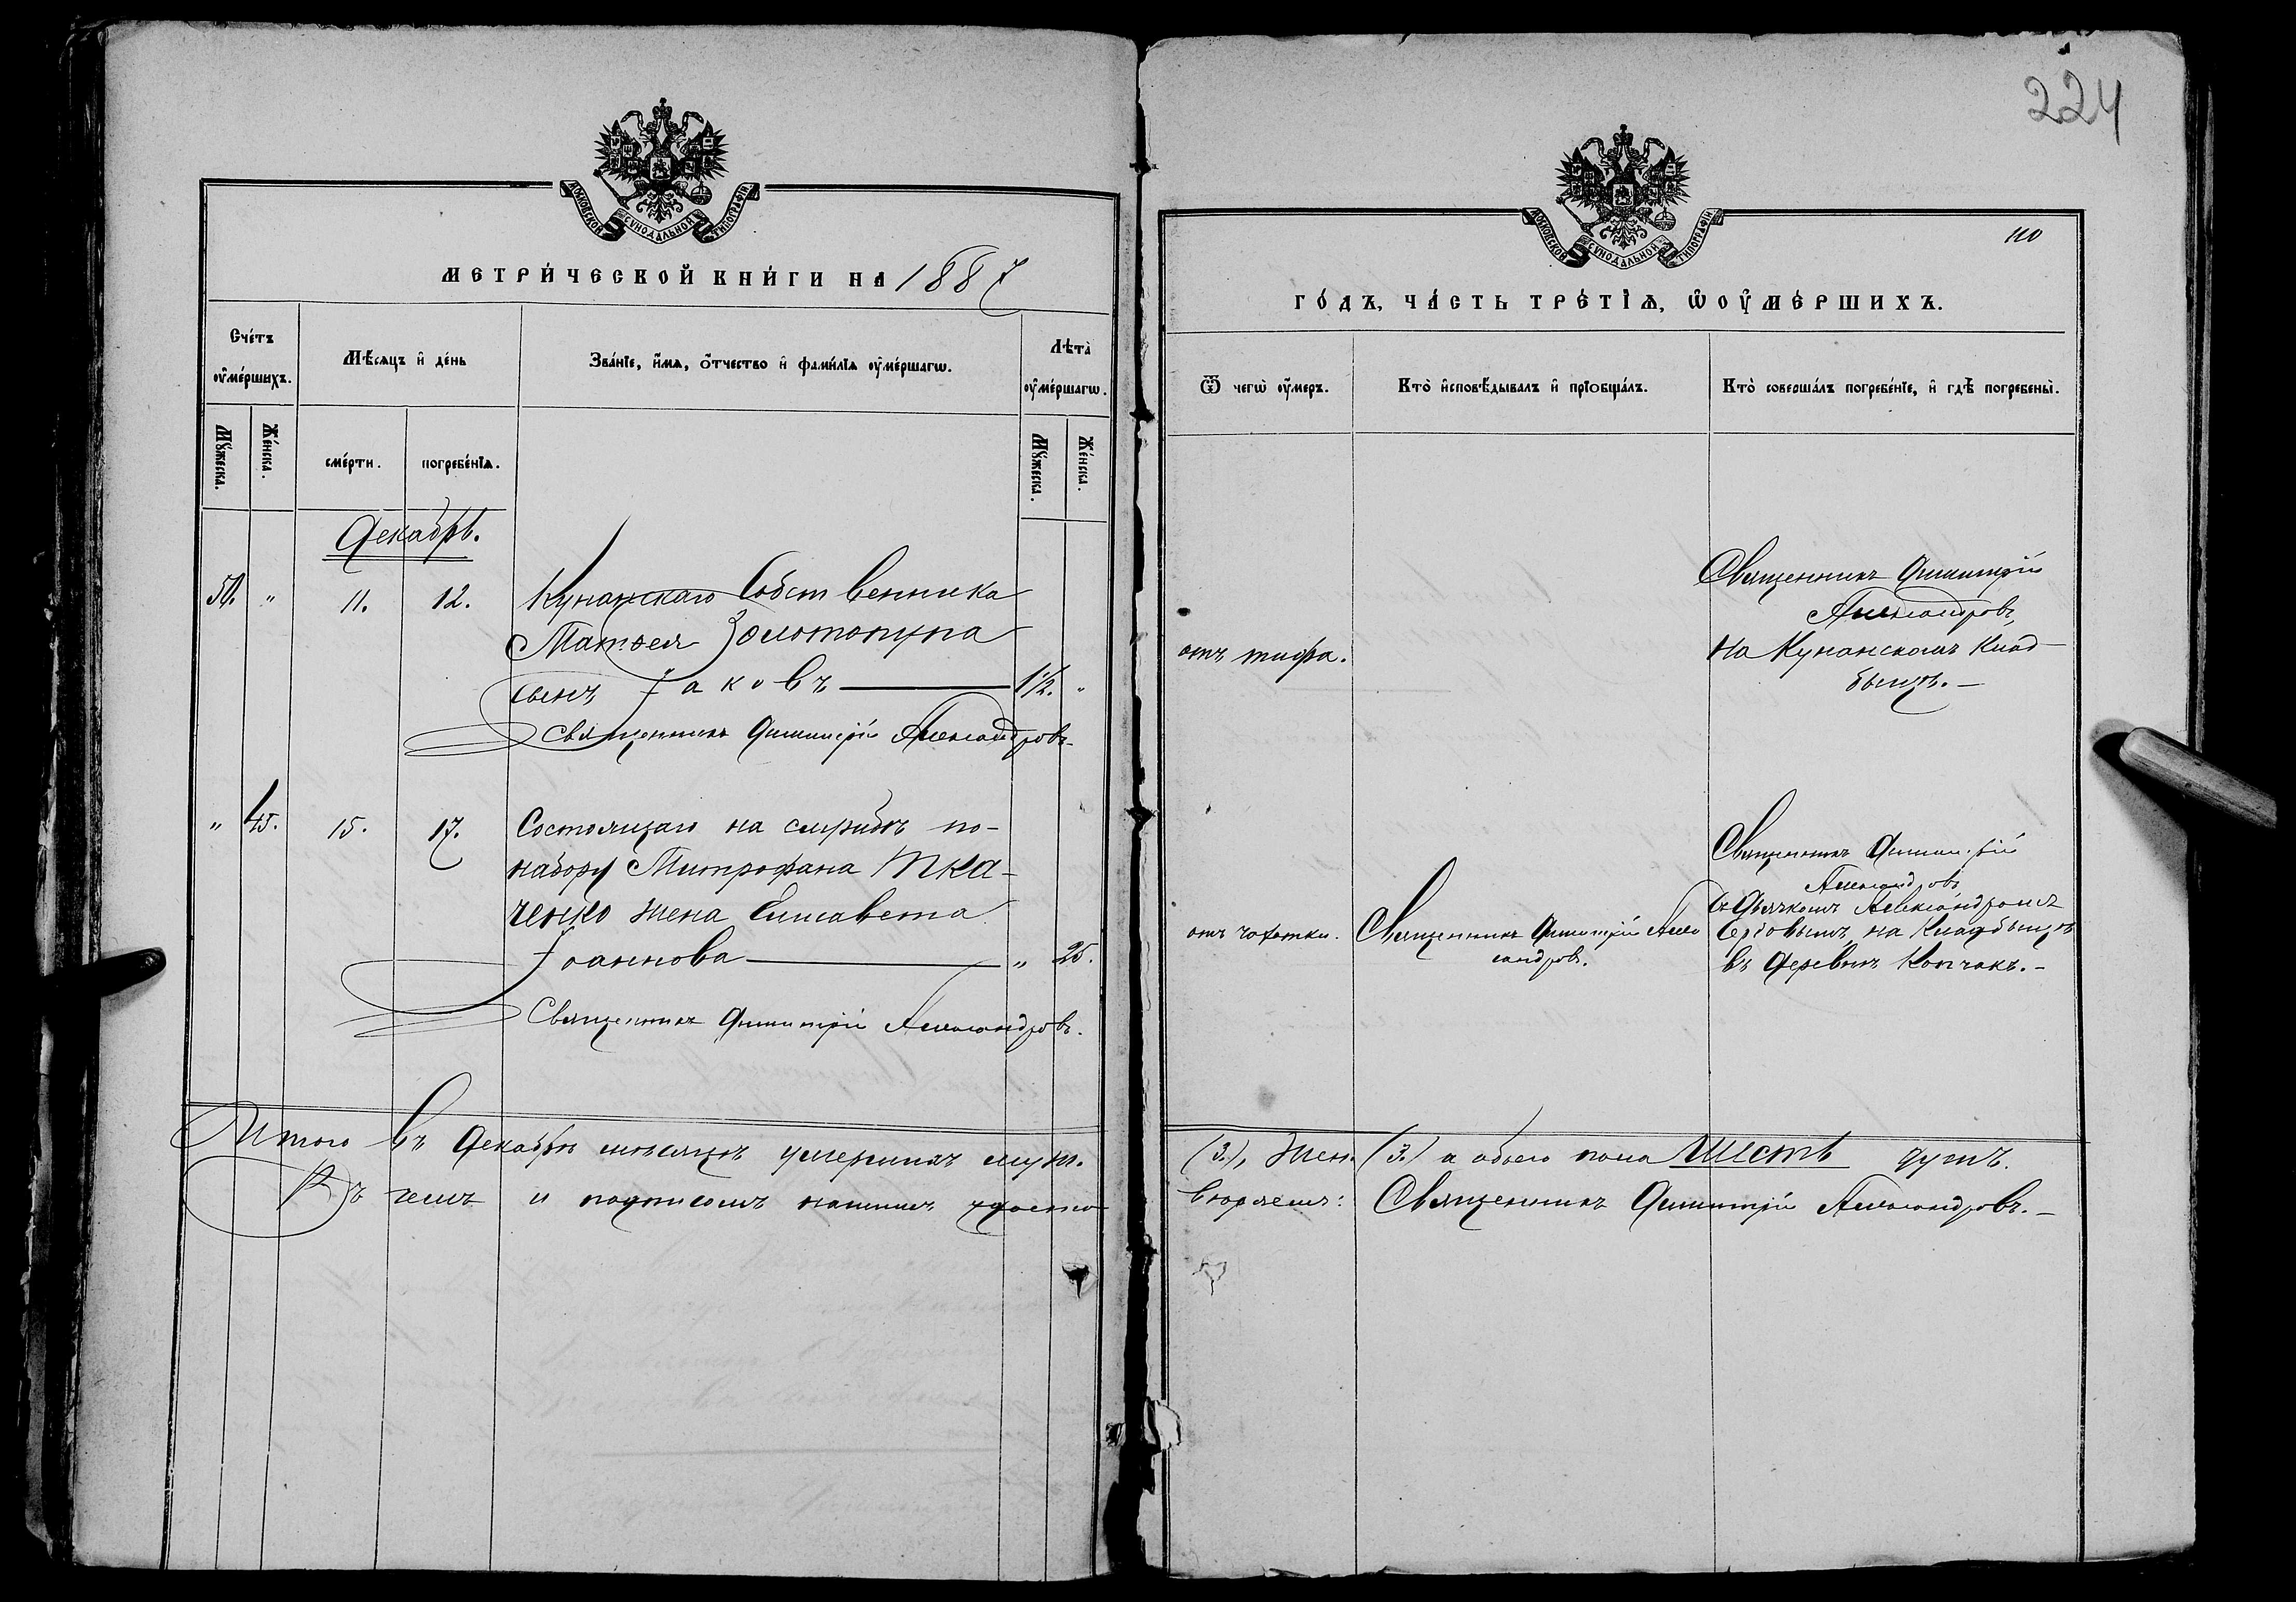 224
МОСКОВСКОЙ СѴНОДАЛЬНОЙ ТИПОГРАФІИ
МЕТРИ́ЧЕСКОЙ КНИ́ГИ НА 1887
Сче́тъ ᲂу҆ме́ршихъ.
Мѣ́сяцъ и҆ де́нь
Зва́нїе, и҆́мѧ, ѻ҆́тчество и҆ фами́лїѧ ᲂу҆ме́ршагѡ.
Лѣта̀ ᲂу҆ме́ршагѡ.
Мꙋ́жеска.
Же́нска.
сме́рти.
погребе́нїѧ.
Мꙋ́жеска.
Же́нска.
Декабрь.
50. " 11. 12. Кунанскаго Собственника
Матѳея Золотопупа
сынъ Іаковъ — 1½. "
Священникъ Димитрій Александровъ.
" 45. 15. 17. Состоящаго на службѣ по-
набору Митрофана Тка-
ченко жена Елисавета
Іоаннова — " 25.
Священникъ Димитрій Александровъ.
Итого въ Декабрѣ мѣсяцѣ умершихъ муж.
Въ чемъ и подписомъ нашимъ удосто-
МОСКОВСКОЙ СѴНОДАЛЬНОЙ ТИПОГРАФІИ
110
ГО́ДЪ, ЧА́СТЬ ТРЕ́ТЇѦ, Ѡ҆ ᲂУ҆МЕ́РШИХЪ.
Ѿ чегѡ̀ ᲂу҆́меръ.
Кто̀ и҆сповѣ́дывалъ и҆ прїобща́лъ.
Кто̀ соверша́лъ погребе́нїе, и҆ гдѣ̀ погребены̀.
Священникъ Димитрій
Александровъ,
отъ тифа.
на Кунанскомъ Клад-
бищѣ.—
Священникъ Димитрій
Александровъ
съ Дьячкомъ Александромъ
отъ чахотки. Священникъ Димитрій Алек
сандровъ.
на Кладбищѣ
въ Деревнѣ Копчакъ.—
(3.), Жен. (3.) а обоего пола шесть душъ.
вѣряемъ: Священникъ Димитрій Александровъ.—